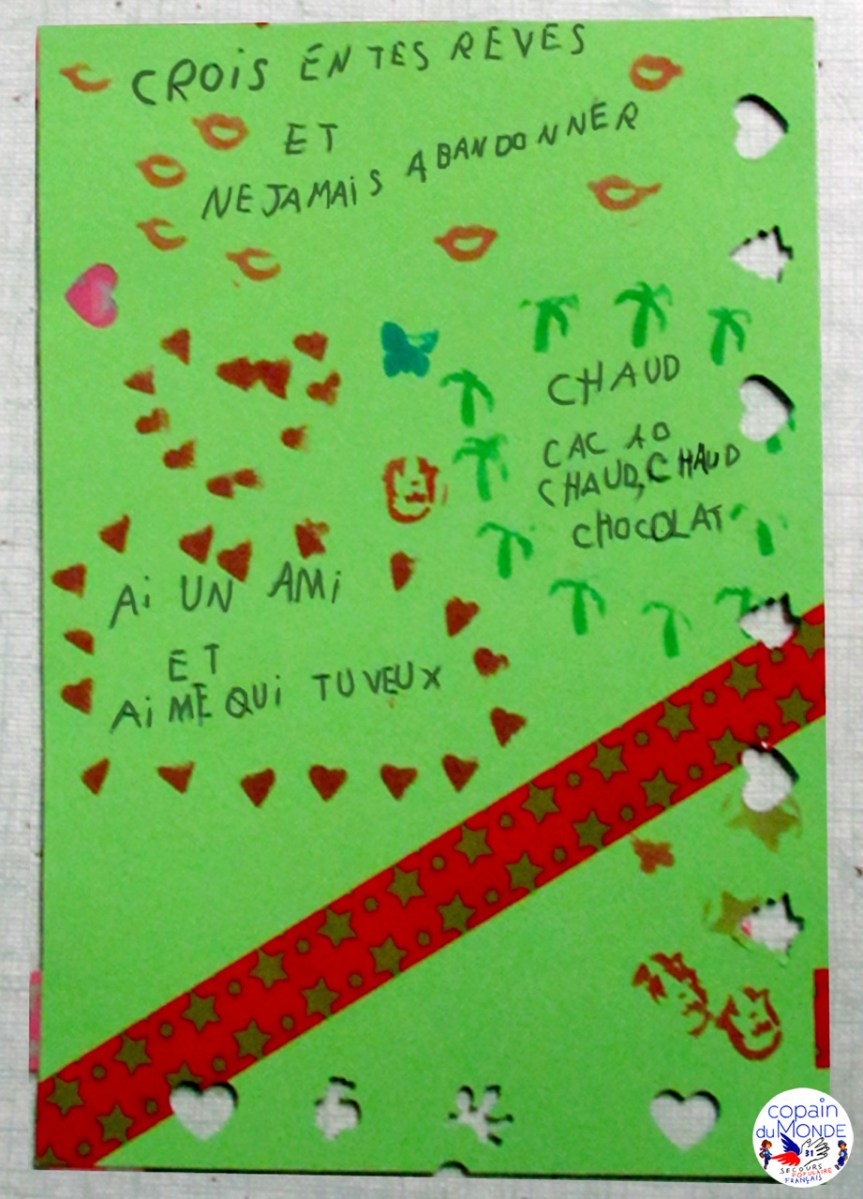 CROiS EN TES REVES
ET
NE JAMAiS ABANDONNER
CHAUD
CACAO
CHAUD, CHAUD
CHOCOLAT
Ai UN AMi
ET
AiME QUi TU VEUX
copain
du MONDE
31
SECOURS
POPULAIRE
FRANÇAIS